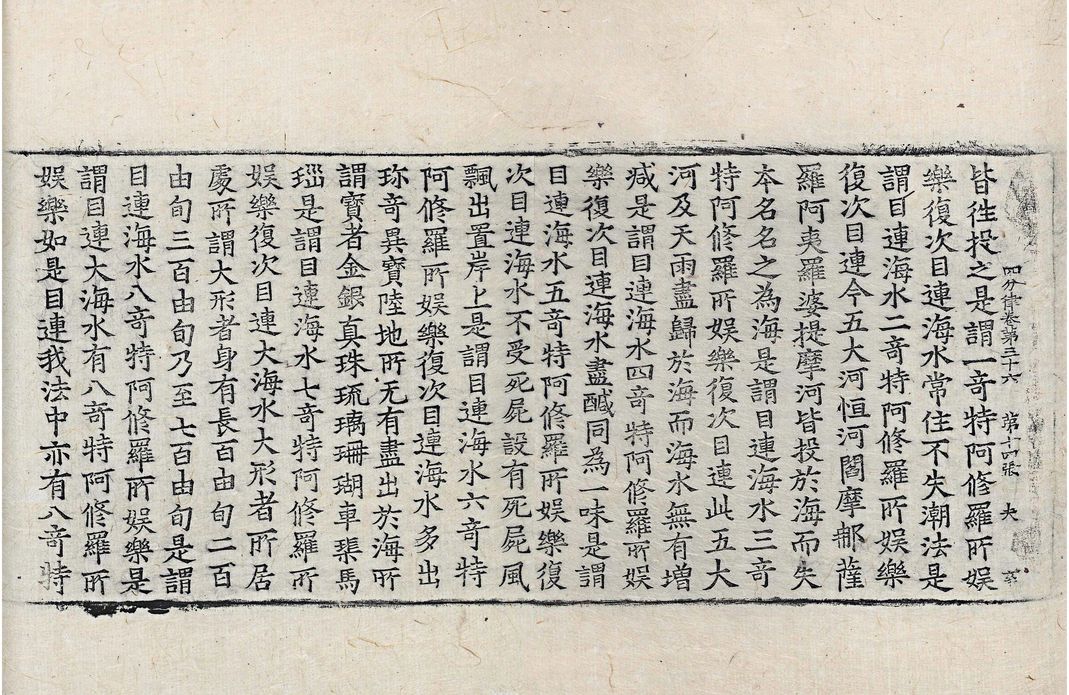 四分律卷第三十六 第十四張 大
皆徃投之是謂一奇特阿修羅所娛
樂復次目連海水常住不失潮法是
謂目連海水二奇特阿修羅所娛樂
復次目連今五大河恒河閻摩那薩
羅阿夷羅婆提摩河皆投於海而失
本名名之為海是謂目連海水三奇
特阿修羅所娛樂復次目連此五大
河及天雨盡歸於海而海水無有增
減是謂目連海水四奇特阿修羅所娛
樂復次目連海水盡醎同為一味是謂
目連海水五奇特阿修羅所娛樂復
次目連海水不受死屍設有死屍風
飄出置岸上是謂目連海水六奇特
阿修羅所娛樂復次目連海水多出
珎奇異寶陸地所无有盡出於海所
謂寶者金銀真珠琉璃珊瑚車璖馬
瑙是謂目連海水七奇特阿修羅所
娛樂復次目連大海水大形者所居
處所謂大形者身有長百由旬二百
由旬三百由旬乃至七百由旬是謂
目連海水八奇特阿修羅所娛樂是
謂目連大海水有八奇特阿修羅所
娛樂如是目連我法中亦有八奇特